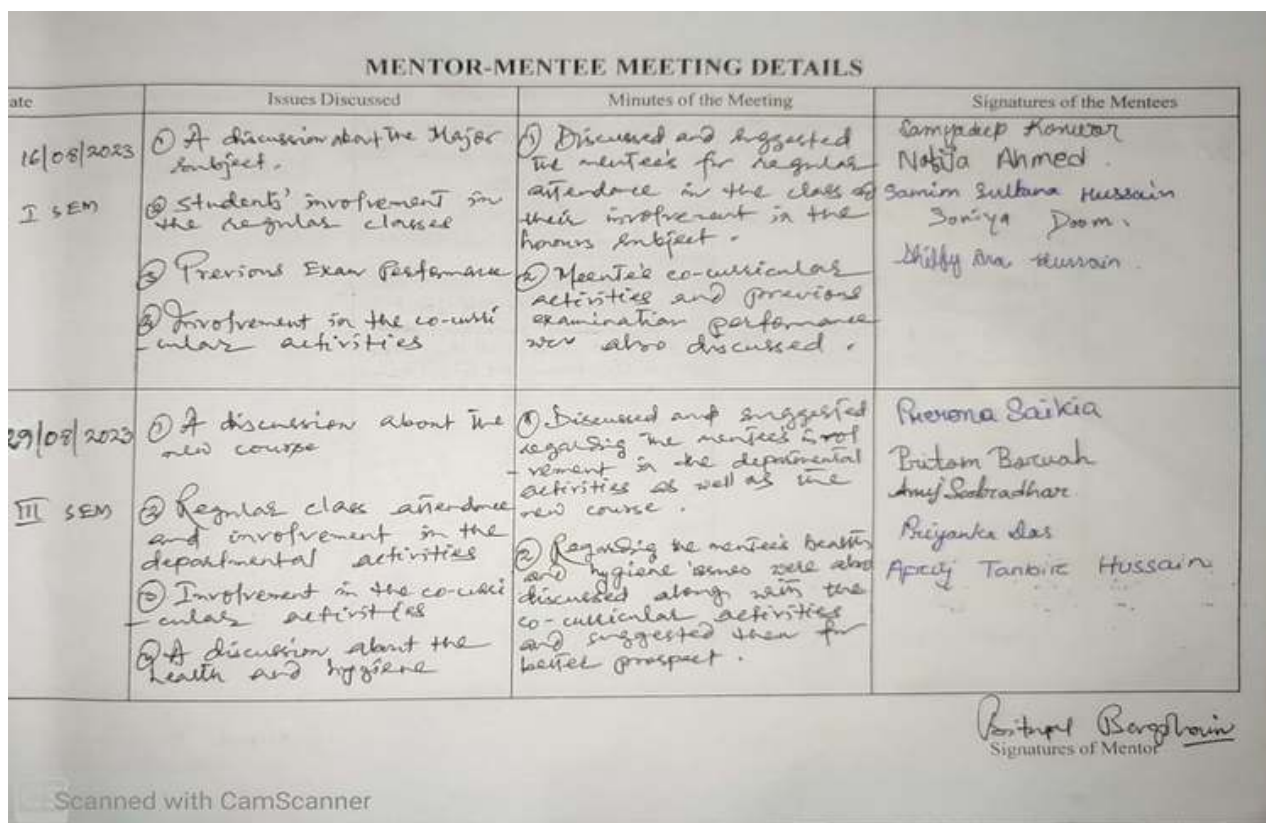 MENTOR-MENTEE MEETING DETAILS
ate
Issues Discussed
Minutes of the Meeting
Signatures of the Mentees
16/08/2023
I SEM
① A discussion about the Major
subject.
② Students' involvement in
the regular classes
③ Previous Exam Performance
④ Involvement in the co-curri
-cular activities
① Discussed and suggested
the mentee's for regular
attendance in the class &
their involvement in the
honours subject.
② Meentee co-curricular
activities and previous
examination performance
were also discussed.
Samyadeep Konwar
Nafija Ahmed.
Samim Sultana Hussain
Soniya Doom.
Ara Hussain.
29/08/2023
III SEM
① A discussion about the
new course
② Regular class attendance
and involvement in the
departmental activities
③ Involvement in the co-curri
-cular activities
④ A discussion about the
health and hygiene
① Discussed and suggested
regarding the mentee's invol
-vement in the departmental
activities as well as the
new course.
② Regarding the mentee's health
and hygiene issues were also
discussed along with the
co-curricular activities
and suggested them for
better prospect.
Prerona Saikia
Pritom Baruah
Anuj Soobradhar
Priyanka Das
Tanbir Hussain
Borgohain
Signatures of Mentor
Scanned with CamScanner